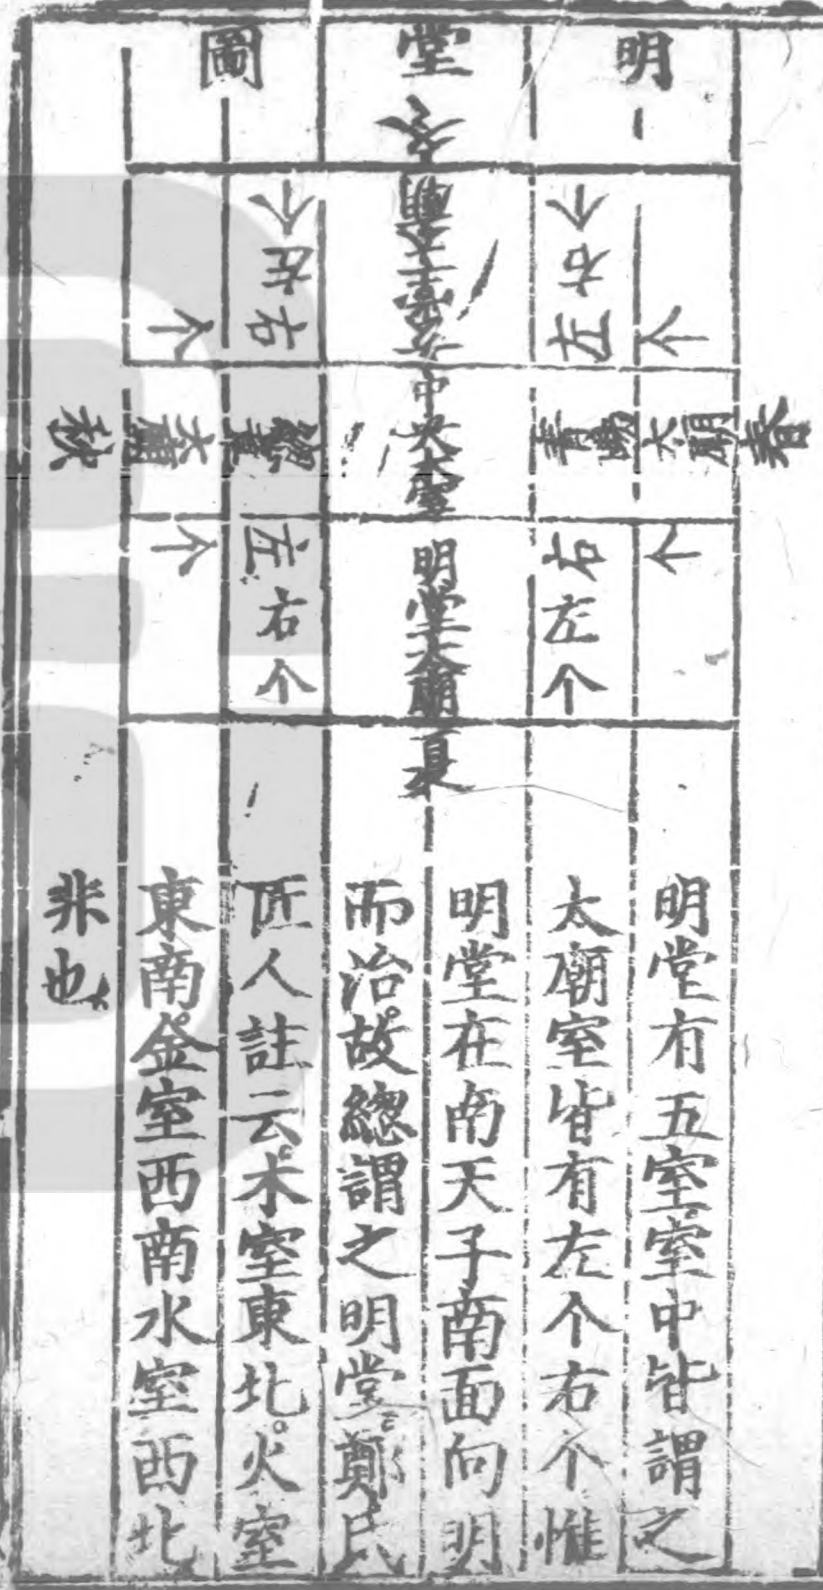 明堂圖
冬
玄堂太廟
个右
左个
个左
右个
春
青陽太廟
中央太室
總章太廟
秋
右个
左个
左个
右个
明堂太廟
夏
明堂有五室室中皆謂之
太廟室皆有左个右个惟
明堂在南天子南面向明
而治故總謂之明堂鄭氏
匠人註云木室東北火室
東南金室西南水室西北
非也